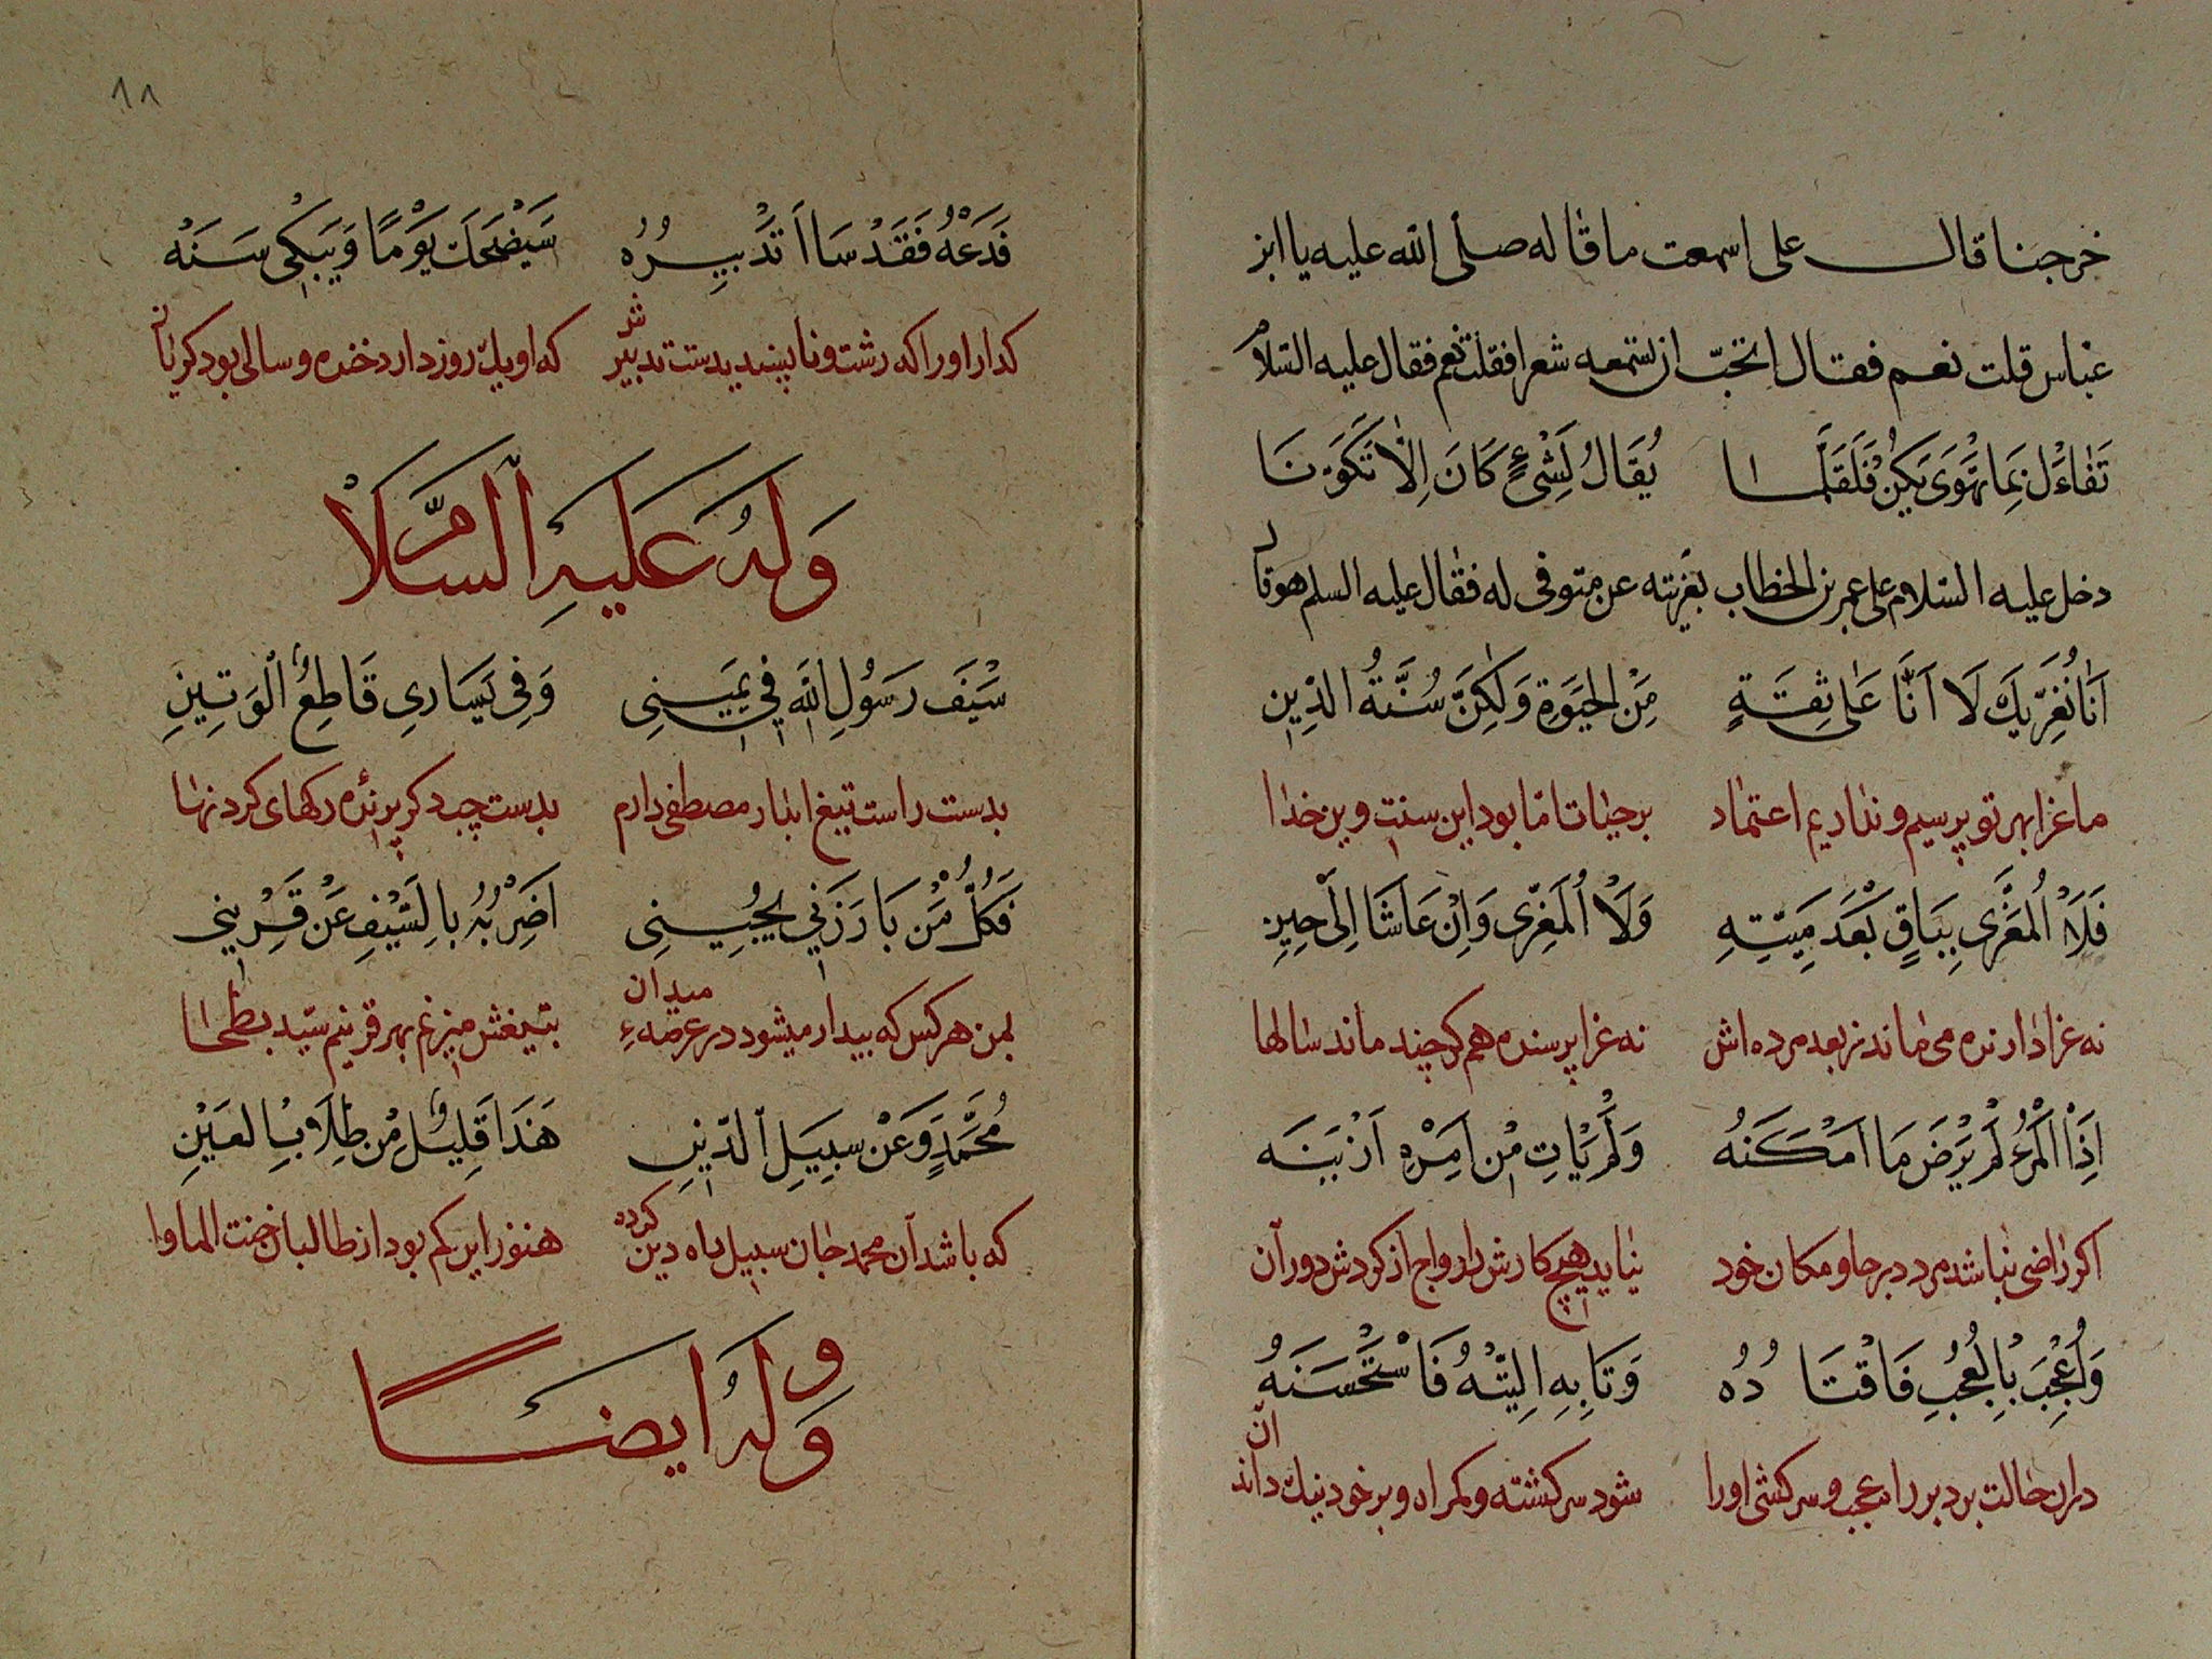 خرجنا قال على اسمعت ما قاله صلى الله عليه يا ابن
عباس قلت نعم فقال اتحبّ ان تسمعه شعرا فقلت نعم فقال عليه السلام
تَفَاءَلْ بِمَا تَهْوَى يَكُنْ فَلَقَلَّمَا يُقَالُ لِشَىْءٍ كَانَ اِلَّا تَكَوَّنَا
دخل عليه السلام على عمر بن الخطاب بعزيته عن متوفى له فقال عليه السلم هو قا
اَنَا نُعَزِّيكَ لَا اَنَّا عَلَى ثِقَةٍ مِنَ الْحَيَوةِ وَلٰكِنَّ سُنَّةُ الدِّينِ
ما عزا بهر تو پرسيم و نداريم اعتماد بر حيات اما بود اين سنت دين خدا
فَلَا الْمُعَزَّى بِبَاقٍ بَعْدَ مَيِّتِهِ وَلَا الْمُعَزِّى وَاِنْ عَاشَا اِلَى حِينِ
نه عزادارنده مى ماند ز بعد مرده اش نه عزا پرسنده هم كر چند ماند سالها
اِذَا الْمَرْءُ لَمْ يَرْضَ مَا اَمْكَنَهُ وَلَمْ يَاْتِ مِنْ اَمْرِهِ اَزْيَنَه
اكر راضى نباشد مرد در جا و مكان خود نيايد هيچ كارش را رواج از كردش دوران
وَاُعْجِبَ بِالْعُجْبِ فَاقْتَادُهُ وَتَابِهِ اِلتِّيْهُ فَاسْتَحْسَنَهُ
دران حالت برد بر راه عجب و سركشى اورا شود سركشته و كمراه و بر خود نيك داند ان
١١
فَدَعْهُ فَقَدْ سَااَ تَدْبِيرُهُ سَيَضْحَكُ يَوْمًا وَيَبْكِى سَنَهْ
كدار اورا كه زشت و ناپسنديدست تدبيرش كه او يك روز دارد خنده و سالى بود كريان
وَلَهُ عَلَيهِ السَّلَامْ
سَيْفَ رَسُولِ اللّٰهِ فِى يَمِينِى وَفِى يَسَارِى قَاطِعُ الْوَتِينِ
بدست راست تيغ نامدار مصطفى دارم بدست چپ دكر برنده ركهاى كردنها
فَكُلُّ مَنْ بَارَزَنِي يَجِيُنِى اَضْرِبُهُ بِالسَّيْفِ عَنْ قَرِينِي
بمن هر كس كه بيدار ميشود در عرصهء ميدان بتيغش ميزنم بهر قرينم سيد بطحا
مُحَمَّدٍ وَعَنْ سَبِيلِ الدِّينِ هَذَا قَلِيلٌ مِنْ طِلَابِ الْعَيْنِ
كه باشد آن محمد جان سبيل راه دين كرده هنوز اين كم بود از طالبان جنت الماوا
وَلَهُ ايضًا